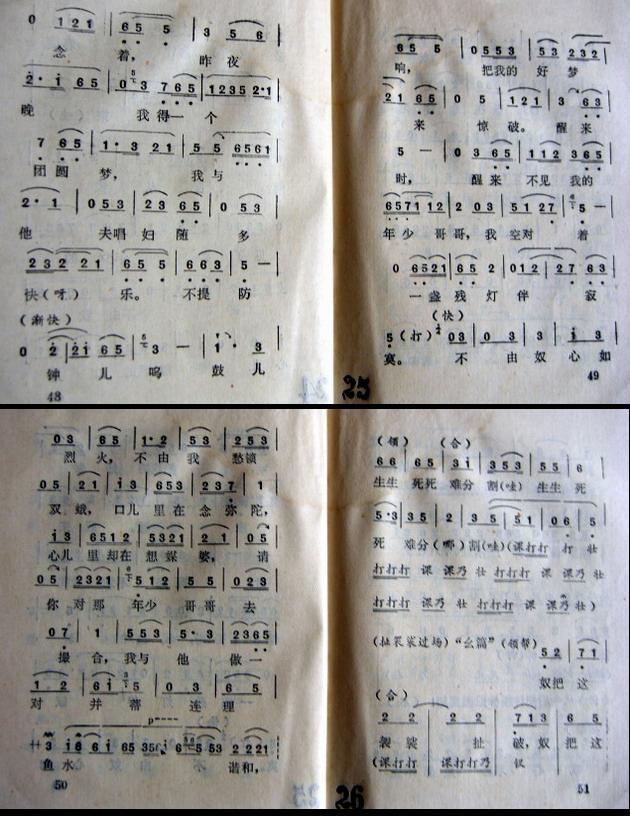 0 121 | 65 5 | 3 5 6
念 着， 昨 夜
2· i 65 | 0 3 765 | 12352·1
晚 我得一 个
7 65 | 1·3 21 | 55 6561
团 圆 梦， 我 与
2· 1 | 053 | 23 65 | 0 53
他 夫唱 妇 随 多
232 21 | 65 5 | 663 | 5 —
快（呀） 乐。 不提 防
（渐快）
0 2 | 21 65 | 3 — | 1· 3
钟 儿 鸣 鼓 儿
48
65 5 | 0553 | 53 232
响， 把我的 好 梦
21 65 | 0 5 | 121 | 3 63
来 惊 破。 醒 来
5 — | 0 365 | 112 365
时， 醒 来 不见 我的
6571 12 | 2 03 | 51 27 | 5 —
年少 哥哥，我 空对 着
0 6521 | 65 2 | 012 | 27 63
一 盏 残 灯 伴 寂
（快）
5（打） 03 | 0 3 | 3 | i 3
寞。 不 由 奴 心 如
49
25
03 | 65 | 1·2 | 53 | 253
烈 火，不 由 我 愁锁
05 | 21 | i3 | 653 | 237 | 1
双 蛾，口儿 里 在 念 弥 陀，
i3 | 6512 | 5321 | 21 | 05
心儿 里 却在 想 媒 婆， 请
05 | 2321 | 512 | 55 | 023
你 对 那 年少 哥哥 去
07 | 1 | 553 | 5·3 | 2365
撮 合，我与 他 做一
12 | 6i 5 | 03 | 65
对 并 蒂 连 理
鱼 水 谐和，
50
（领） （合）
66 | 65 | 3i | 353 | 55 | 6
生生 死死 难分 割(哇) 生生 死
5·3 | 35 | 2 | 35 | 51 | 06 | 5
死 难分（哪）割(哇)（课打打 打 壮
打打打 课 课乃 壮 打打打 课 课乃 壮
打打打 课乃 壮 打打打 课 课乃 壮）
（扯袈裟过场）“幺篇”（领帮） 52 | 71
奴把 这
（合）
2 2 | 2 2 | 713 | 6 5
袈 裟 扯 破，奴 把 这
（课打打 课打打乃 仪
51
26